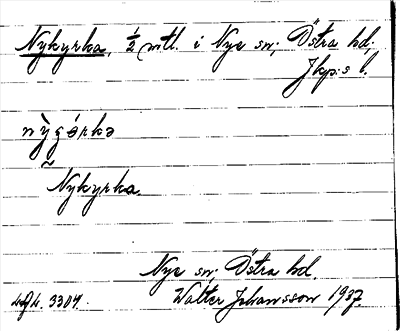 Nykyrka, ½ mtl. i Nye sn; Östra hd;
Jkp:s l.
Nykyrka.
Nye sn; Östra hd.
Walter Johansson 1937.
3304.